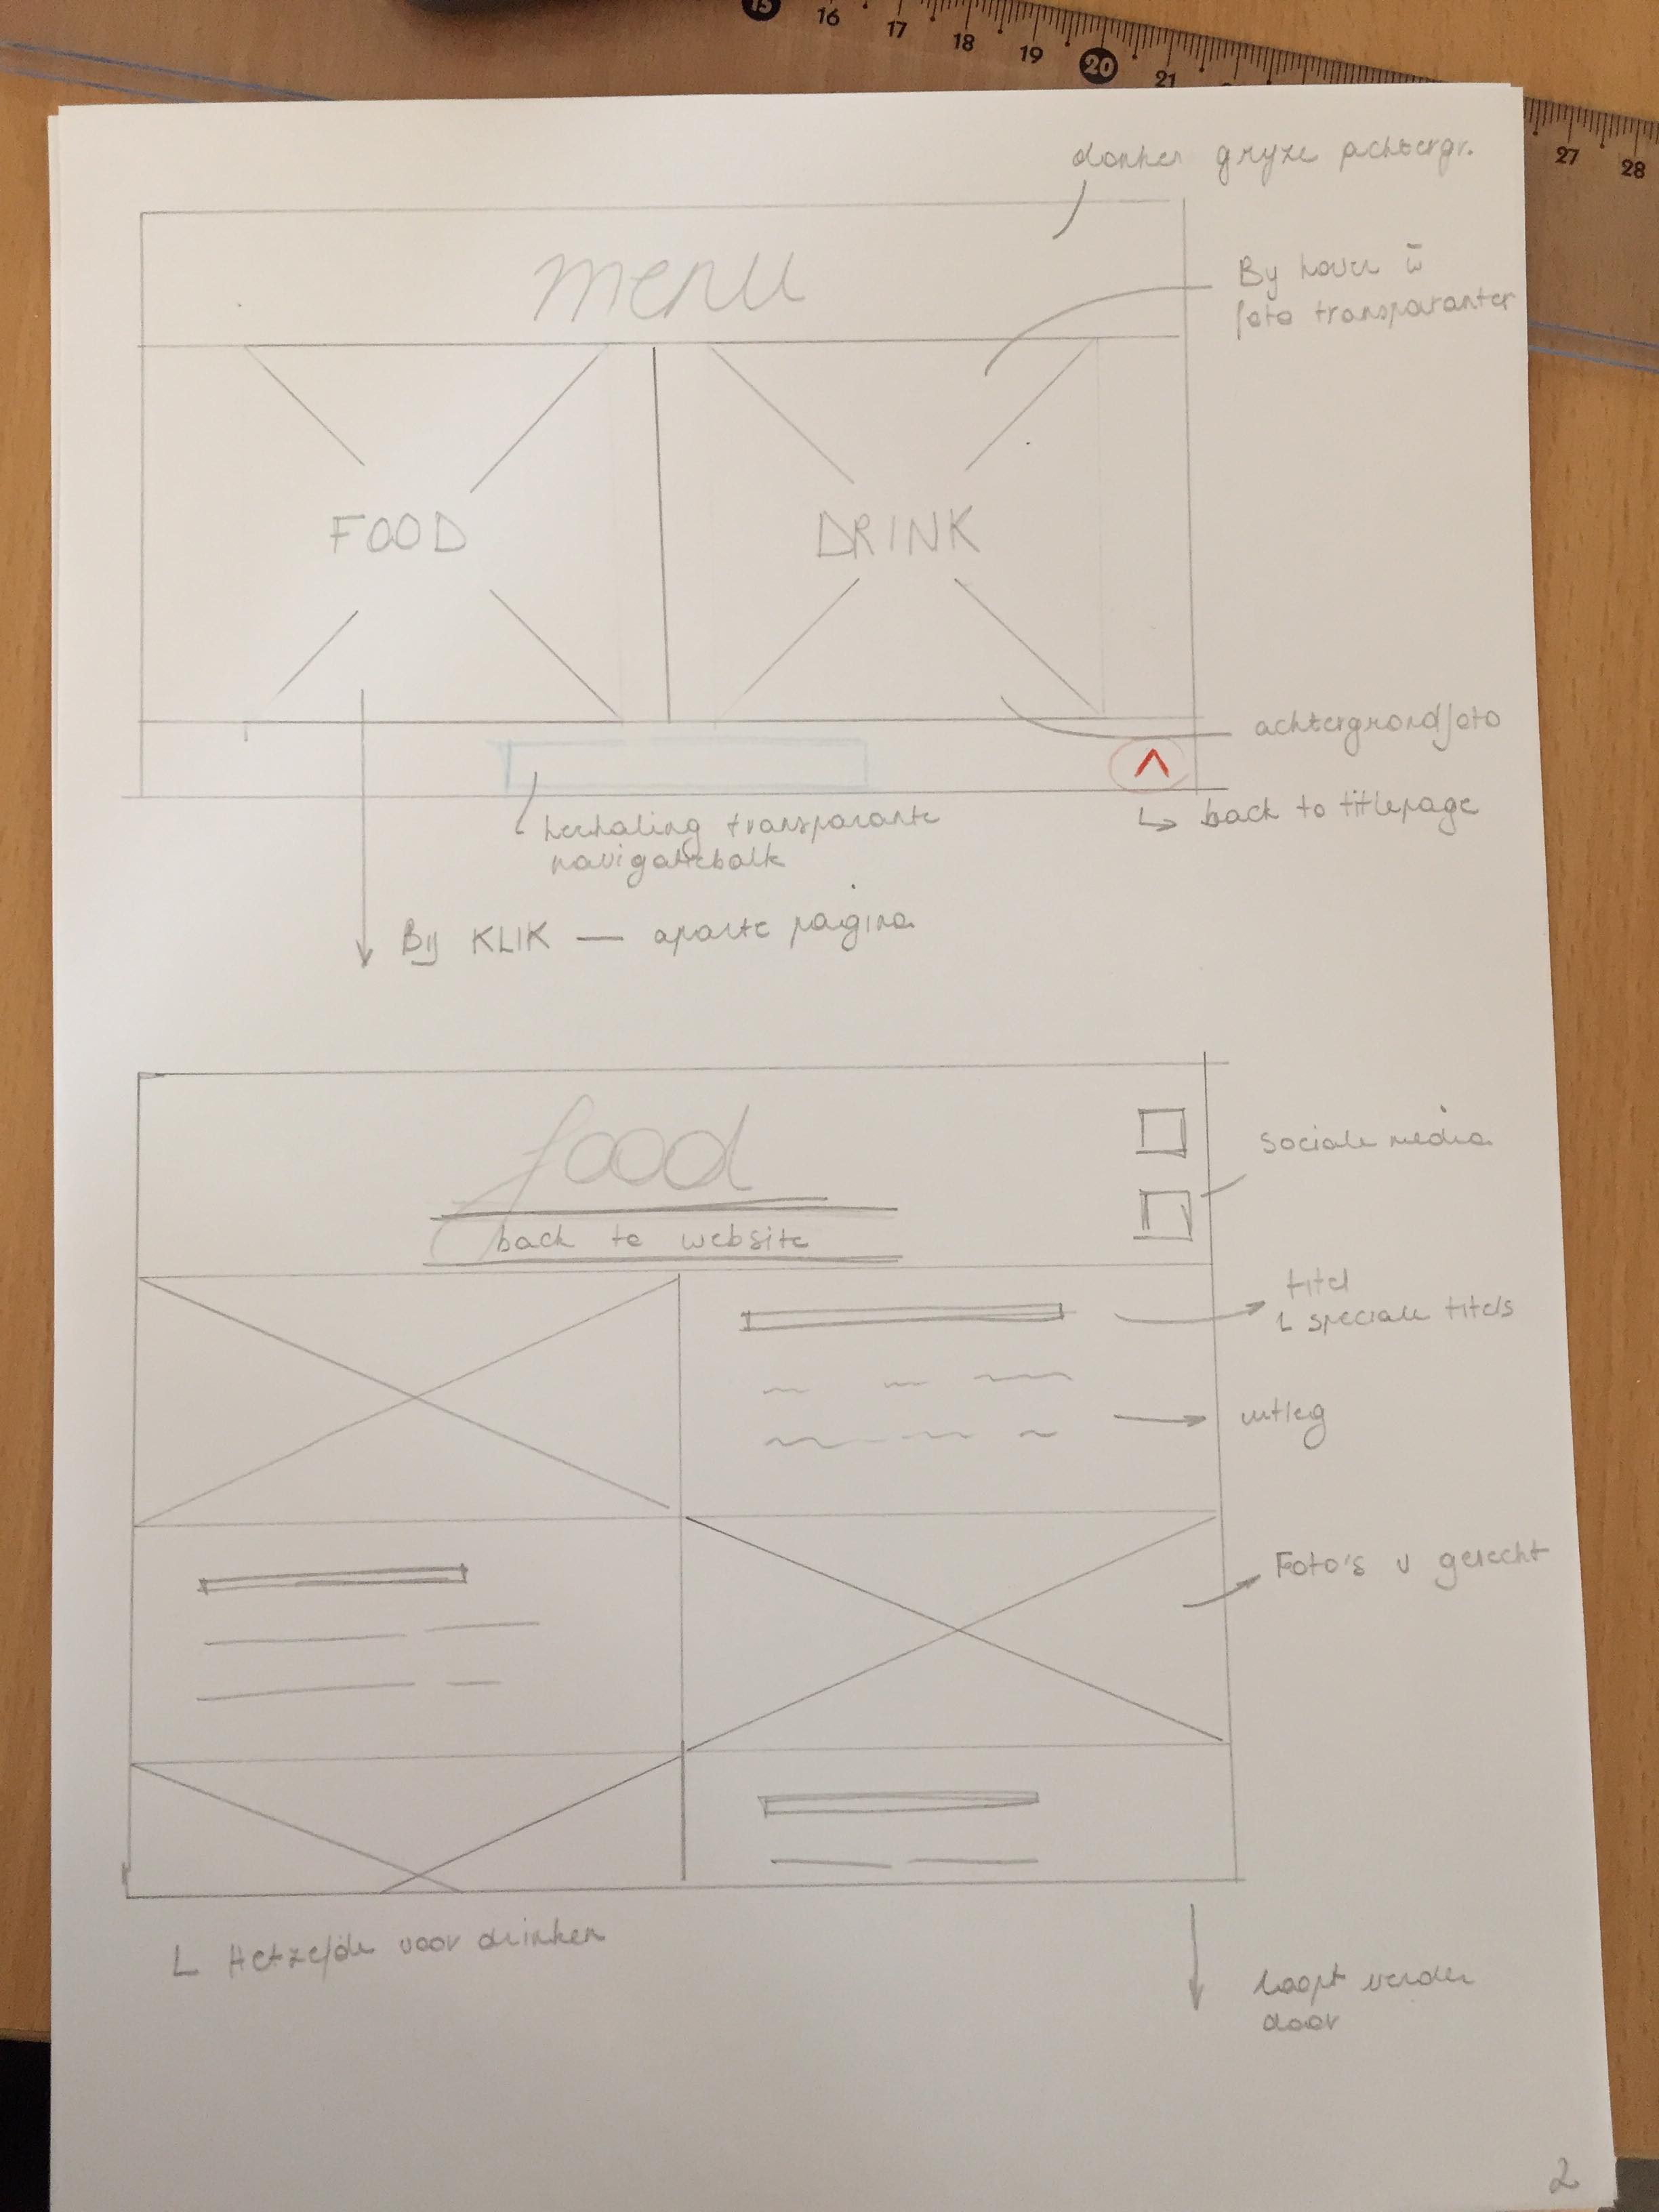 15 16 17 18 19 20 21 27 28
donker gryze achtergr.
menu
By hover w̄
foto transparanter
FOOD
DRINK
achtergrondfoto
herhaling transparante
navigatiebalk
↳ back to titlepage
Bij KLIK — aparte pagina
food
back to website
sociale media
titel
L speciale titels
uitleg
Foto's v gerecht
L Hetzelfde voor drinken
loopt verder
door
2